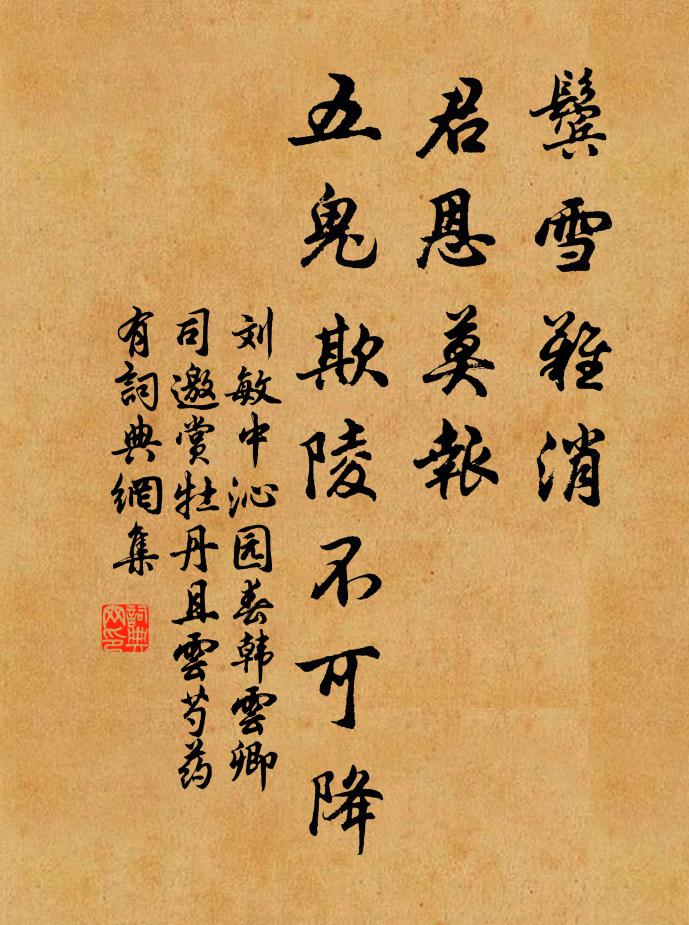 鬓雪难消
君恩莫報
五鬼欺陵不可降
刘敏中沁园春韩雲卿
司邀赏牡丹且雲芍药
有詞典網集
詞典
网印